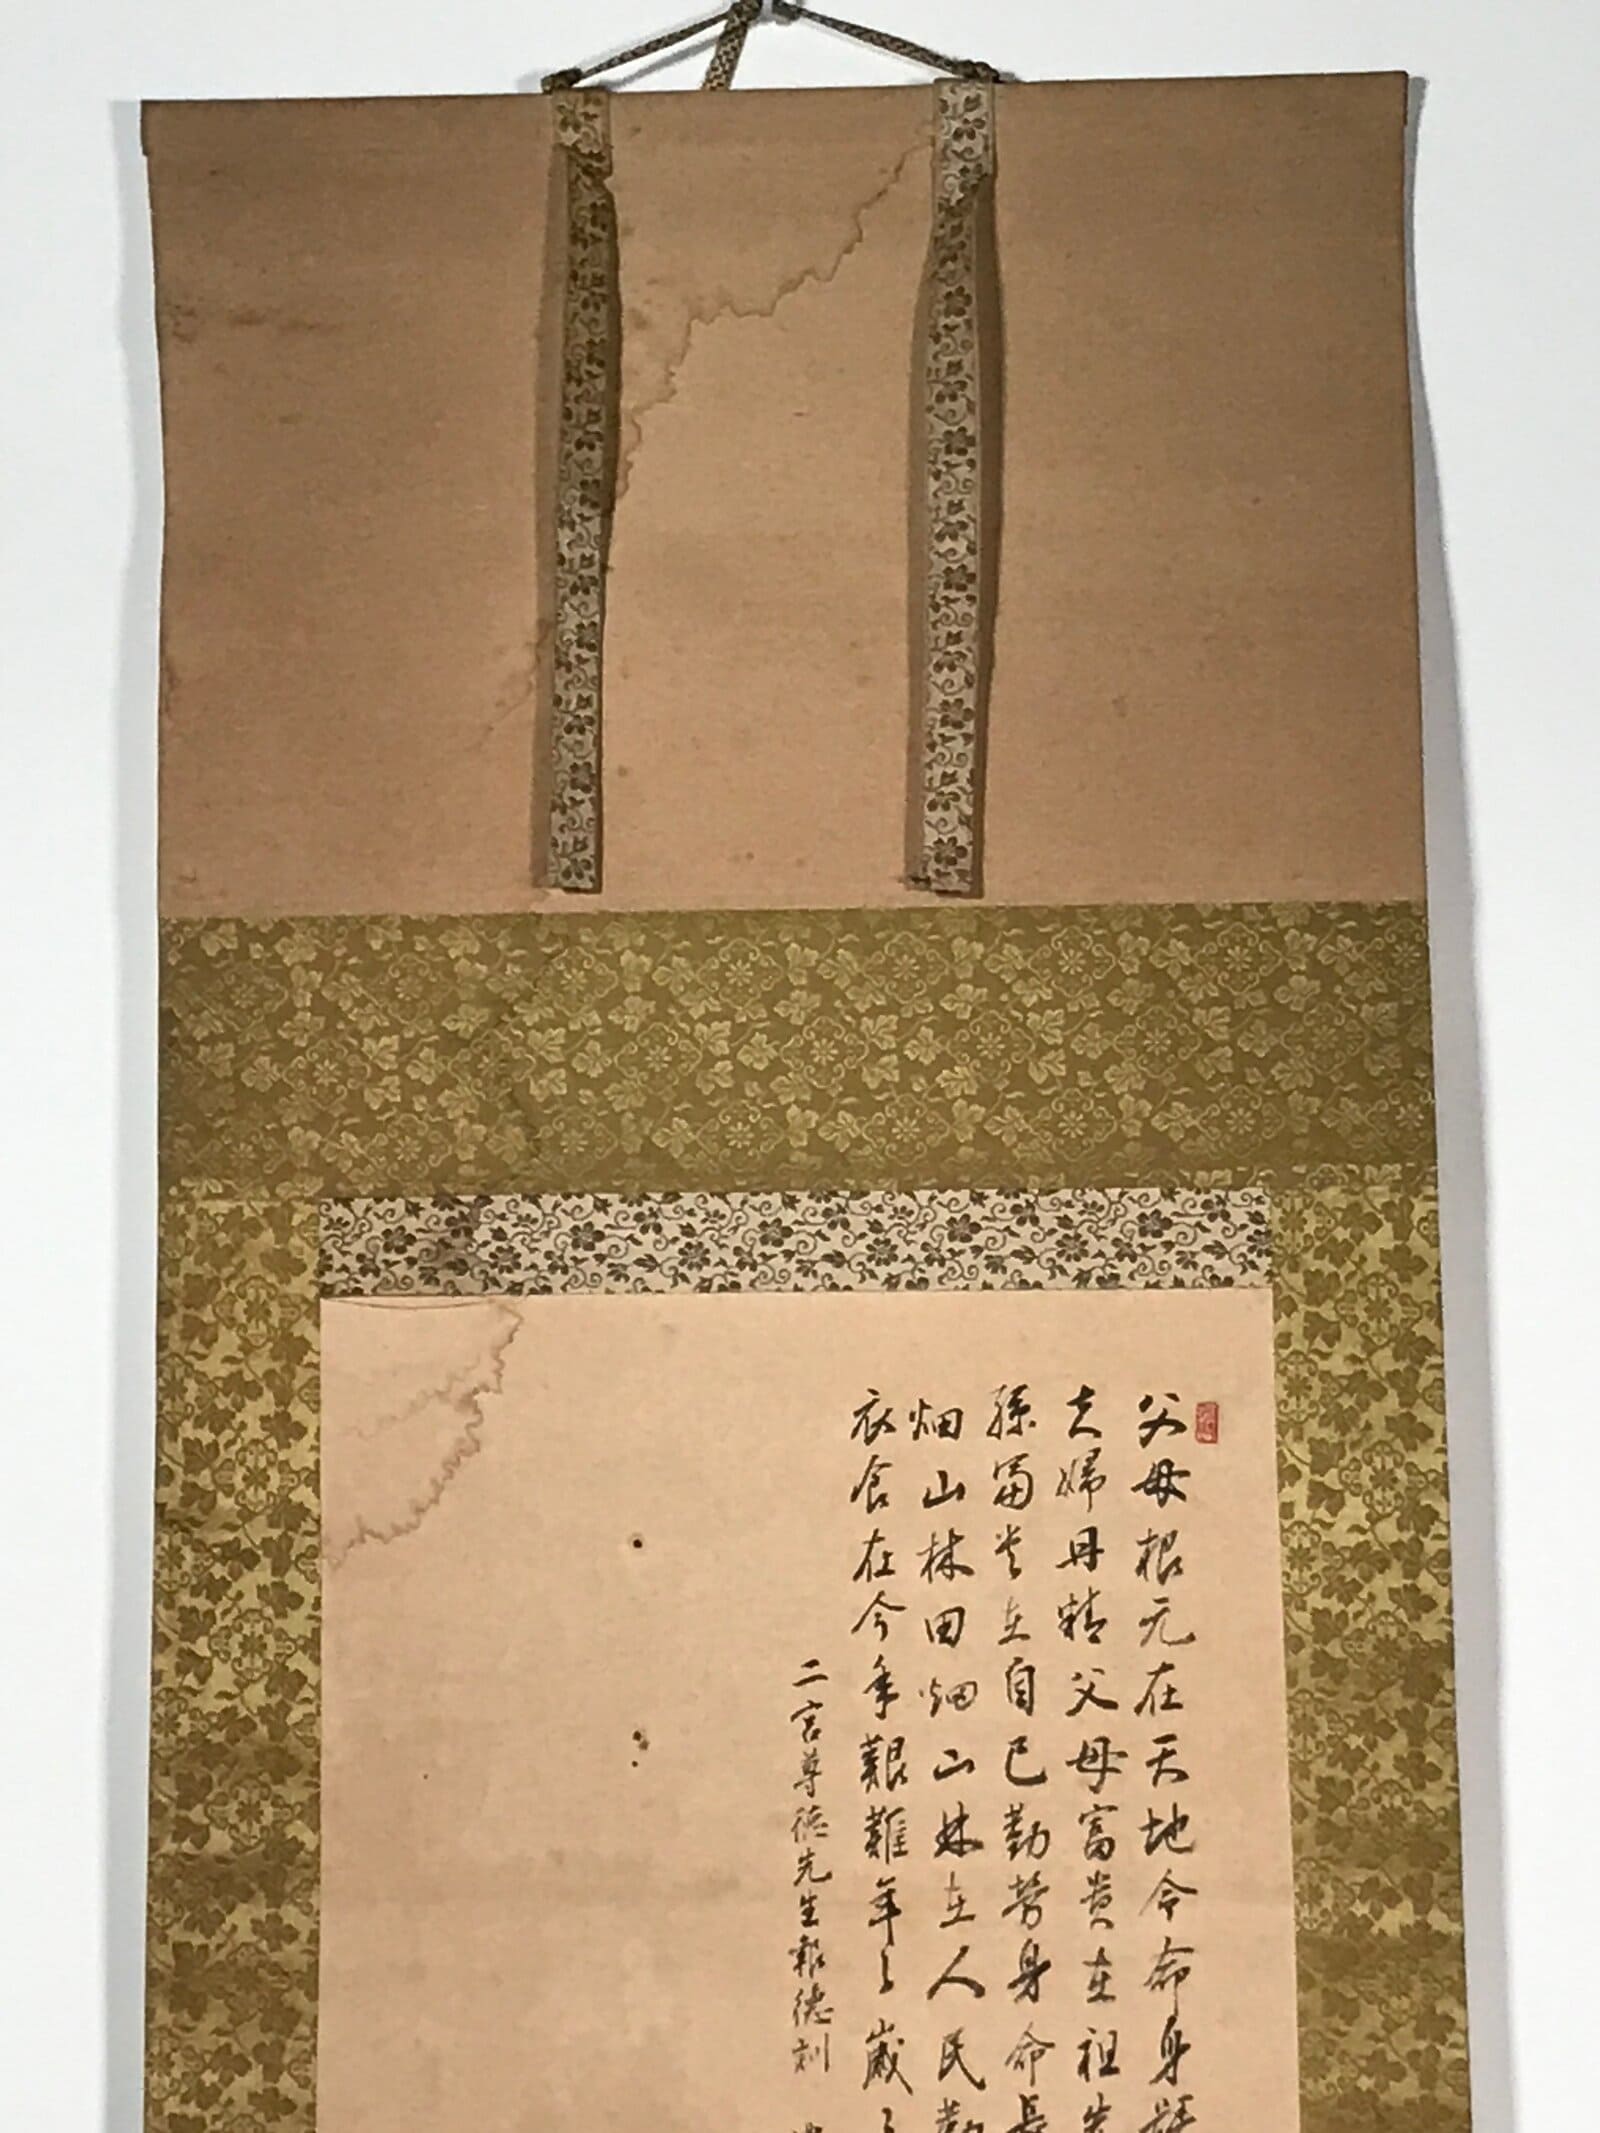 父母根元在天地令命身
夫婦丹精父母富貴在祖先
孫富貴在自己勤労身命長
畑山林田畑山林在人民勤
衣食在今年艱難年々歳々
二宮尊徳先生報徳訓